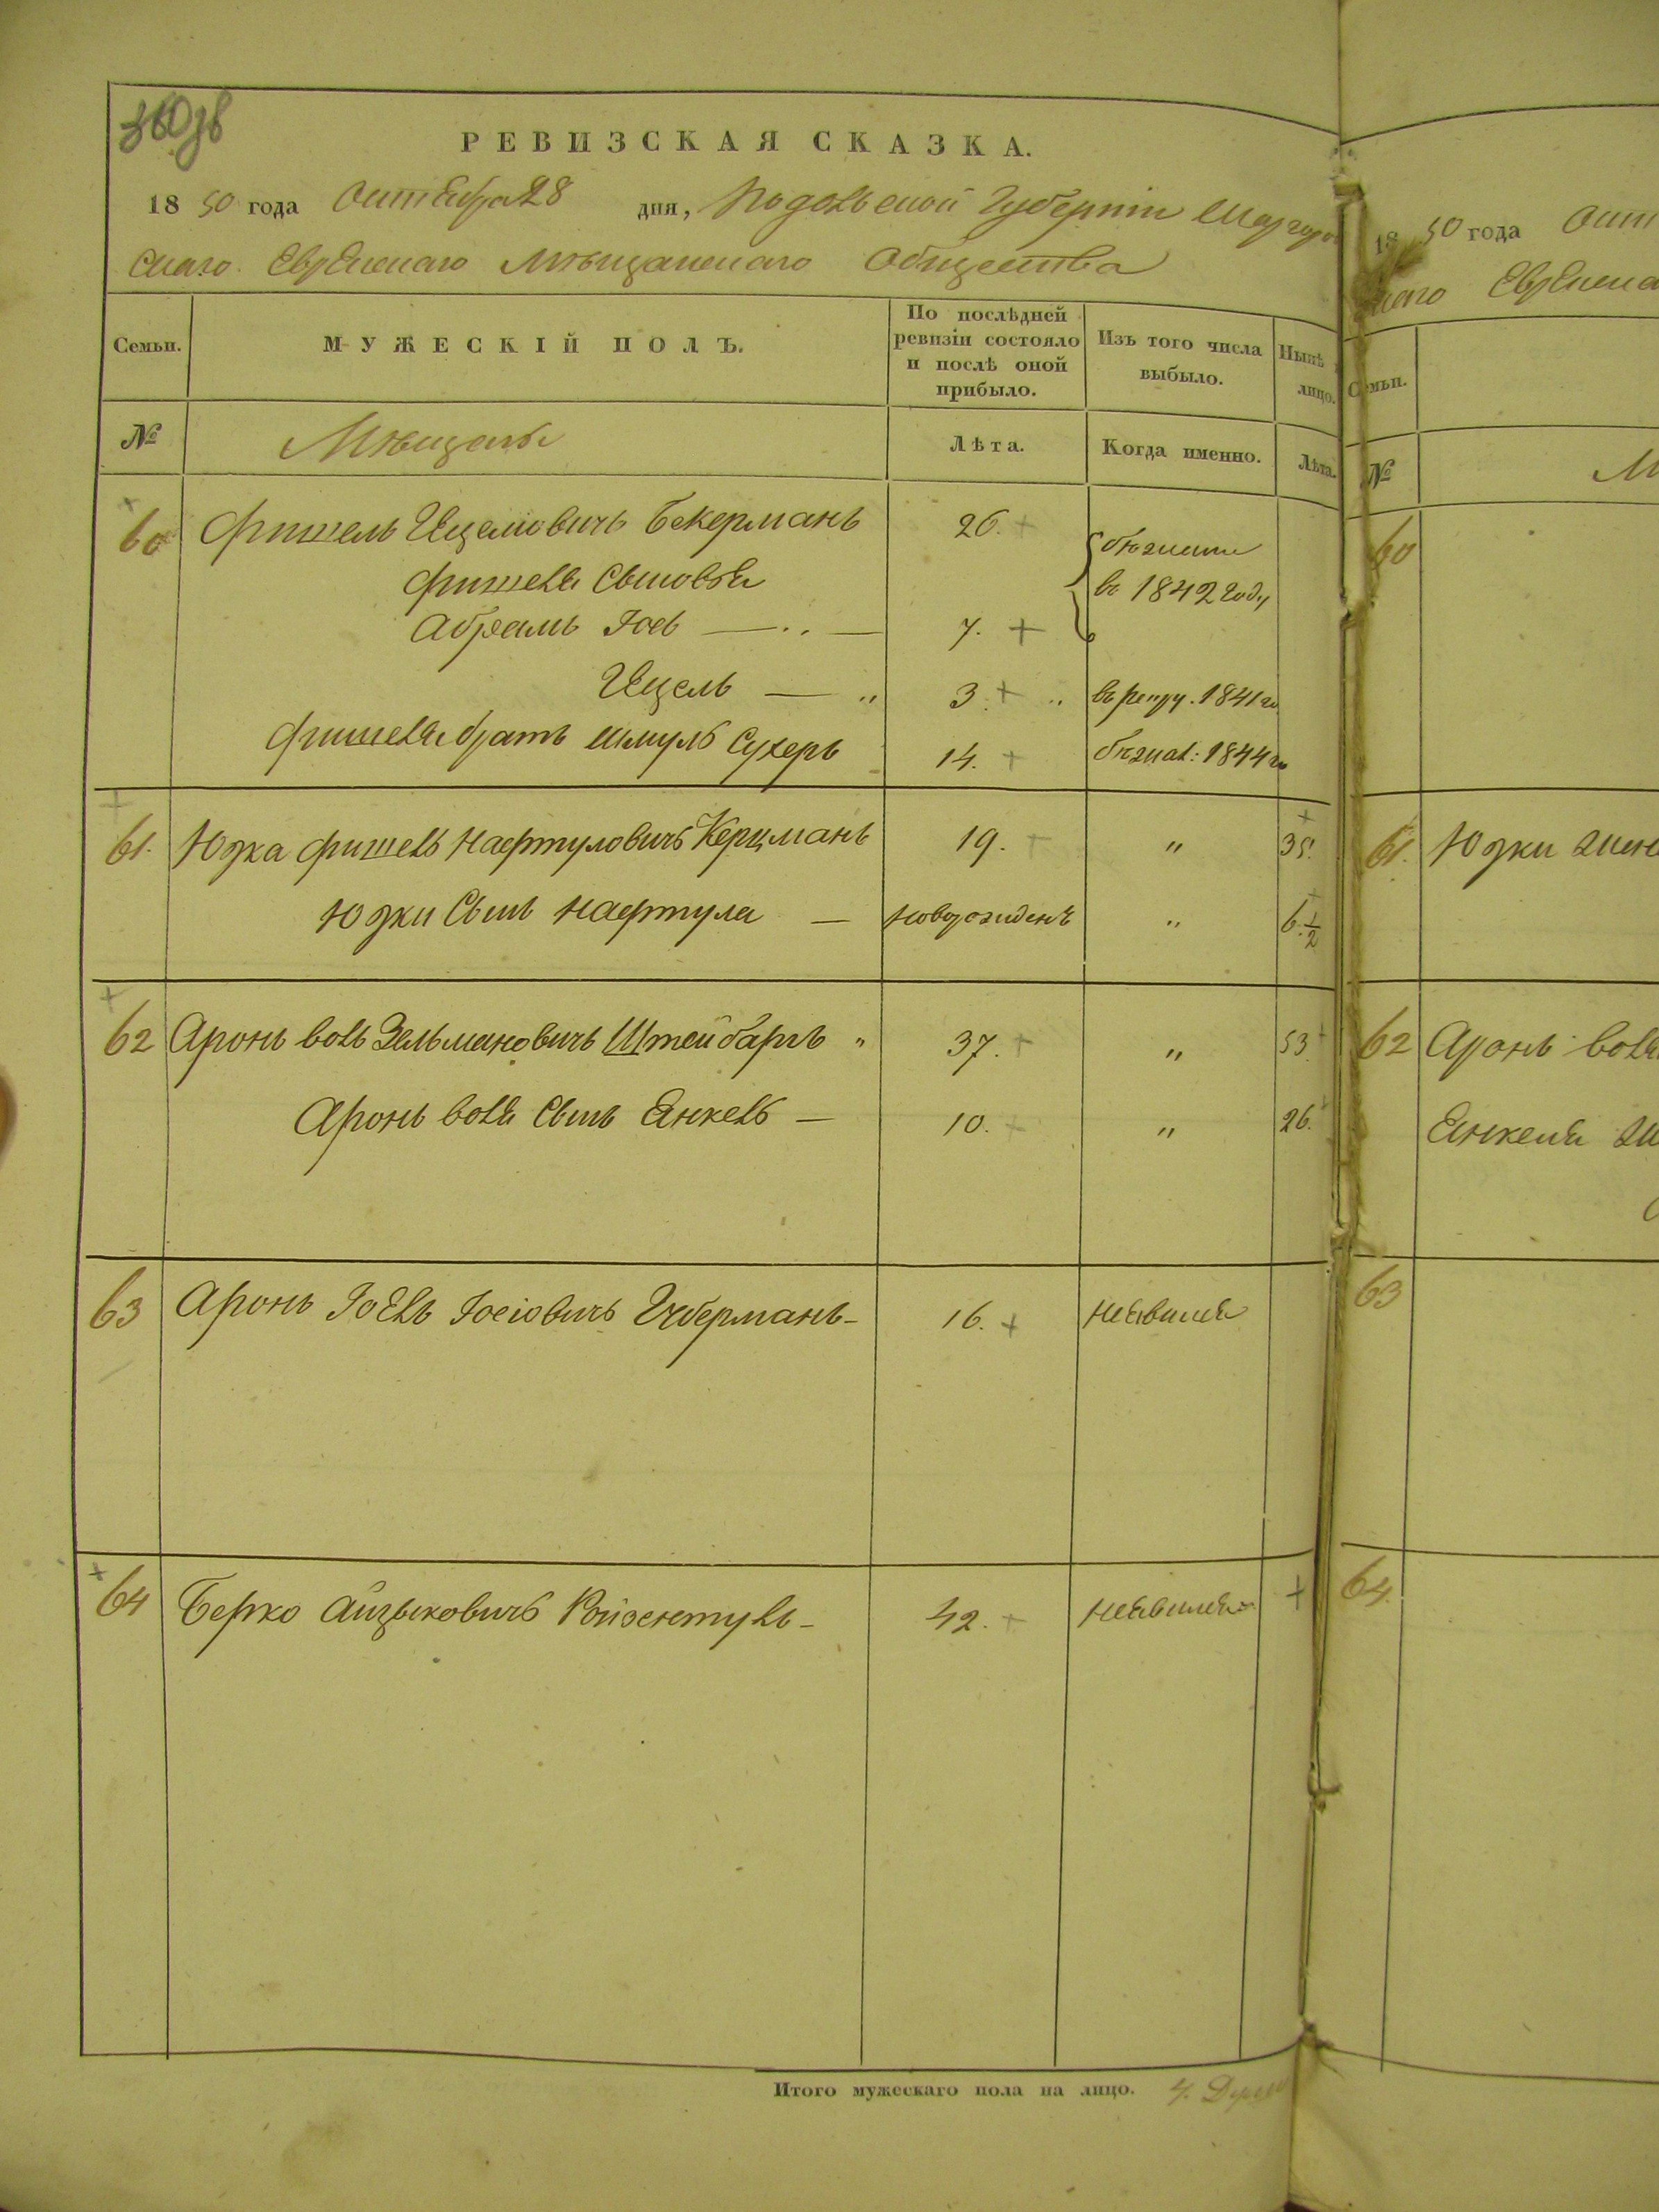 360 зв
РЕВИЗСКАЯ СКАЗКА.
1850 года Октября 28 дня, Подольской Губерніи Шаргород
скаго Еврейскаго Мѣщанскаго Общества
Семьи.
МУЖЕСКІЙ ПОЛЪ.
По послѣдней
ревизіи состояло
и послѣ оной
прибыло.
Изъ того числа
выбыло.
Нынѣ
лицо.
№
Мѣщане
Лѣта.
Когда именно.
Лѣта.
60 Фишель Ицеловичъ Бекерманъ 26.
бѣжали
въ 1842 году
Фишеля Сыновья
Абрамъ Іось 7.
Ицель 3. въ рекру. 1841 го
Фишеля братъ Шмуль Сухеръ 14. бѣжал: 1844 го
61. Юдка Фишель Нафтуловичъ Керцманъ 19. " 35.
Юдки Сынъ Нафтула — новорожденъ " 6.½
62 Аронъ Воль Зельмановичъ Штейбаргъ " 37. " 53.
Аронъ Воля Сынъ Янкель — 10. " 26.
63 Аронъ Іоель Іосіовичъ Губерманъ — 16. неявился
64 Берко Айзыковичъ Ройзентуль — 42. неявился
Итого мужескаго пола на лицо. 4. Души
18 50 года Окт
скаго Еврейска
Семьи.
№
М
60
61. Юдки жена
62 Аронъ Воля
Янкеля
63
64.